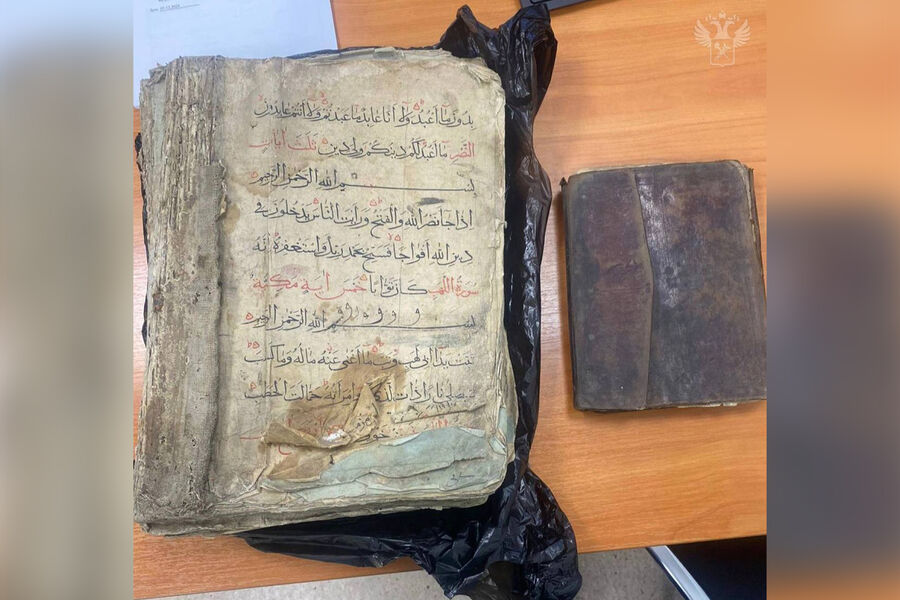 بدون ما اعبد ولا انا عابد ما عبدتم ولا انتم عابدون
النصر ما اعبد لكم دينكم ولى دين ثلث ايات
بسم الله الرحمن الرحيم
اذا جا نصر الله والفتح ورايت الناس يدخلون فى
دين الله افواجا فسبح بحمد ربك واستغفره انه
سورة اللهب كان توابا خمس اية مكية
بسم الله الرحمن الرحيم
تبت يدا ابى لهب وتب ما اغنى عنه ماله وما كسب
سيصلى نارا ذات وامراته حمالت الحطب